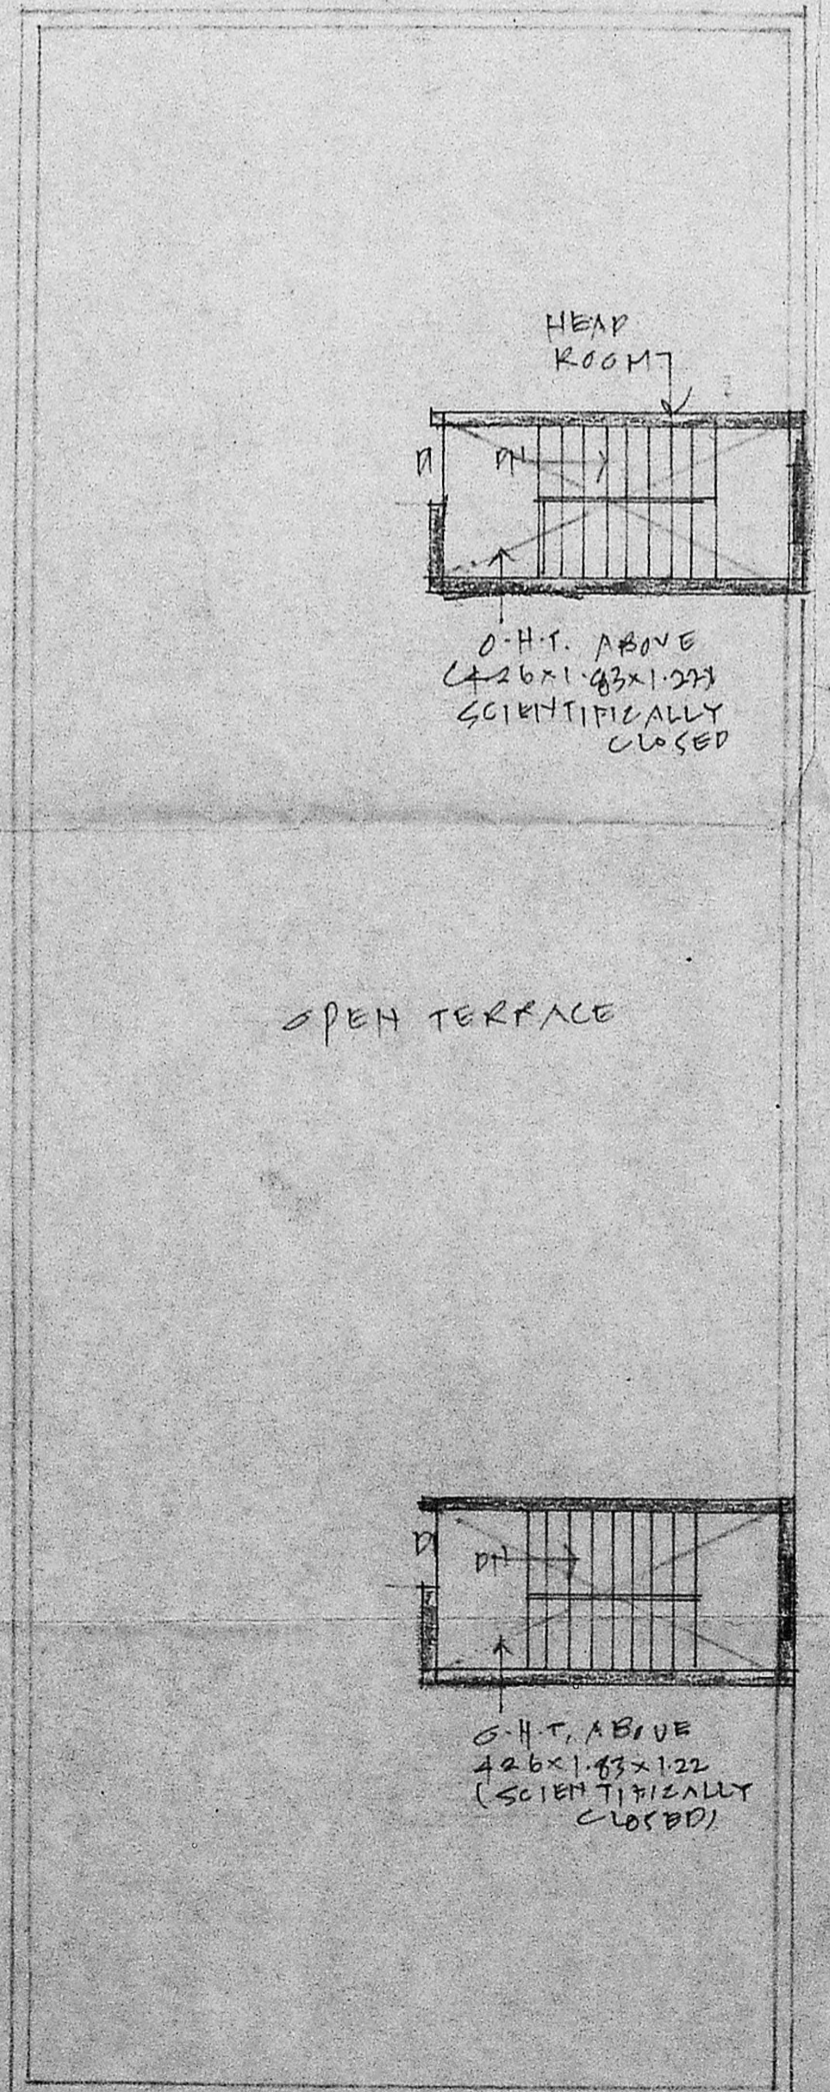 HEAD
ROOM
D1
DN
O.H.T. ABOVE
(4.26×1.83×1.22)
SCIENTIFICALLY
CLOSED
OPEN TERRACE
D1
DN
O.H.T. ABOVE
4.26×1.83×1.22
(SCIENTIFICALLY
CLOSED)